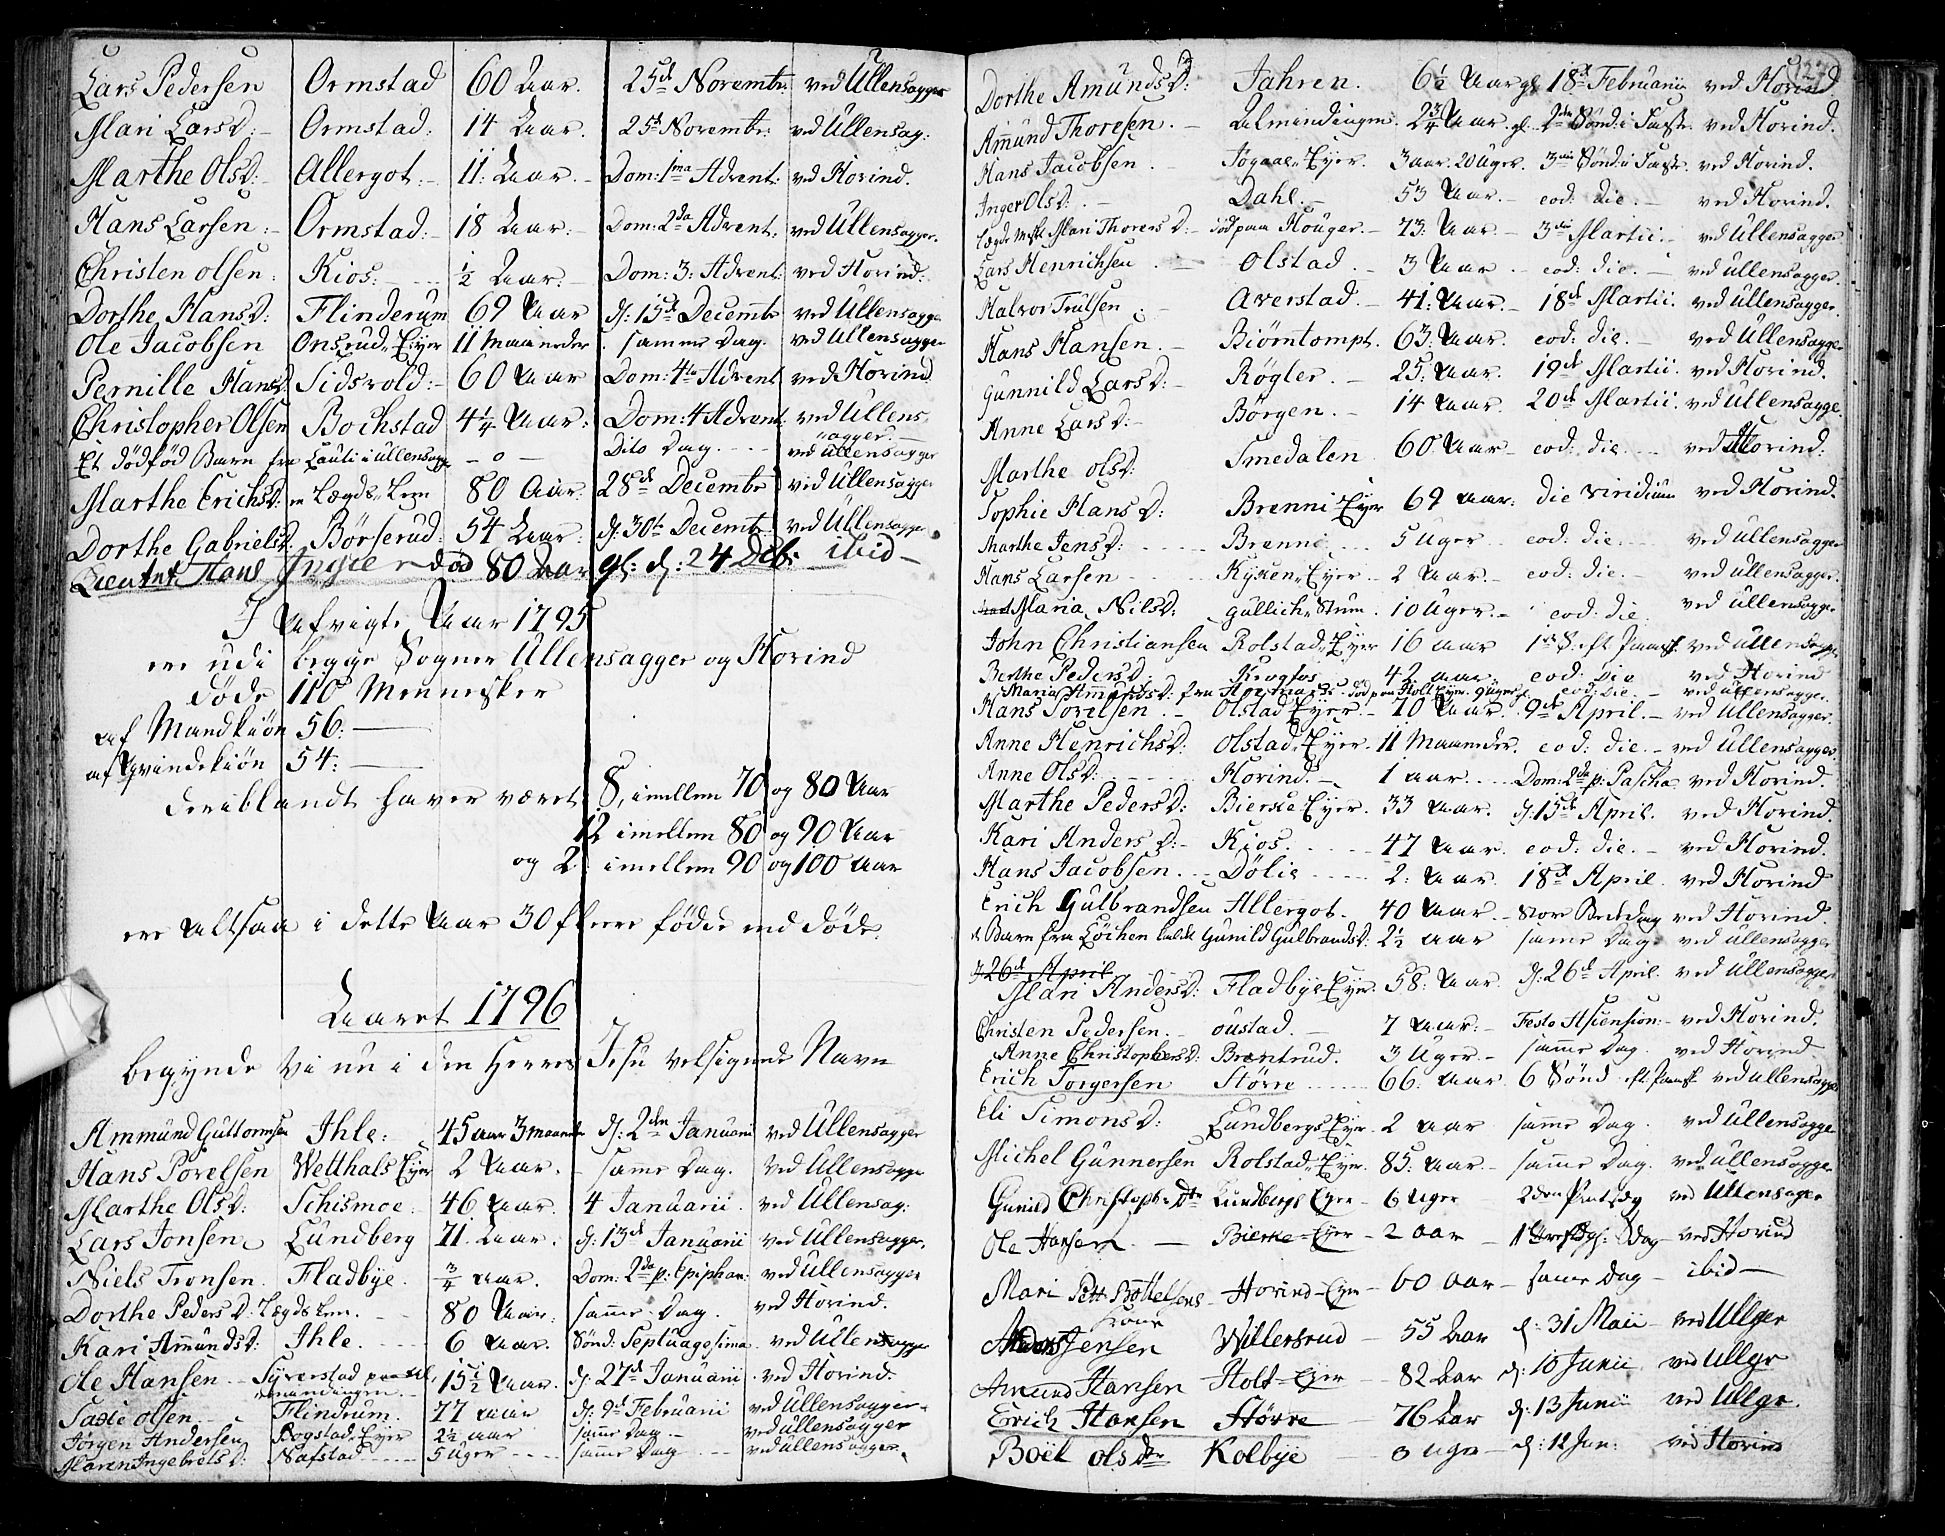 Lars Pedersen Ormstad 60 Aar. 25d Novembr: ved Ullensagger
Mari LarsD: Ormstad: 14 Aar. 25d Novembr: ved Ullensag:
Marthe OlsD: Allergot. 11: Aar. Dom: 1ma Advent: ved Hovind.
Hans Larsen: Ormstad: 18 Aar: Dom: 2da Advent: ved Ullensagger.
Christen olsen: Kios: 1/2 Aar: Dom: 3: Advent: ved Hovind.
Dorthe HansD: Flinderum 69 Aar d: 15d Decembr ved Ullensagge
Ole Jacobsen Onsrud-Eyer 11 maaneder samme Dag. ved Ullensagger
Pernille HansD: Sidsvold: 60 Aar Dom: 4ta Advent ved Hovind
Christopher Olsen Bochstad 4 1/4 Aar: Dom: 4 Advent ved Ullens-
agger.
Et dödföd Barn fra Lauti i Ullensagg - o - Dito Dag. ved Ullensagger
Marthe ErichsD: en Lægds Lem 80 Aar. 28d Decembr ved Ullensagger
Dorthe GabrielsD: Börserud: 54 Aar: d: 30t Decembr ved Ullensagger
Lieutnt Hans död 80 Aar gl: d: 24 Decbr: ibid
I Afvigte Aar 1795
ere udi begge Sogner Ullensagger og Hovind
döde 110 Mennisker
af Mandkiön 56:
af Qvindekiön 54:
deriblandt haver været 8, imellem 70 og 80 Aar
12 imellem 80 og 90 Aar
og 2 imellem 90 og 100 aar
ere altsaa i dette Aar 30 flere födde end döde.
Aaret 1796
begynde vi nu i den Herres Jesu velsignede Navn
Ammund Guttormsen Ihle: 45 aar 3 maaneder d: 2den Januarii ved Ullensagger
Hans Povelsen Wetthals Eyer 2 Aar. same Dag. ved Ullensagge
Marthe OlsD: Schismoe 46 Aar. 4 Januarii. ved Ullensag:
Lars Jonsen Lundberg 71 Aar. d: 13d Januarii ved Ullensagger.
Niels Tronsen. Fladbye. 3/4 aar. Dom: 2da p: Epiphan: ved Ullensagger
Dorthe PedersD: Lægds Lem. 80 Aar. samme Dag. ved Hovind.
Kari AmundsD: Ihle. 6 Aar. Sönd: Septuagesima. ved Ullensagger
Ole Hansen Syverstad paa Al-
menningen. 15 1/2 Aar. d: 27d Januarii. ved Hovind.
olsen Flindrum. 77 aar d: 9d Februarii ved Ullensagger
Jörgen Andersen Bogstad-Eyer 2 1/2 aar samme Dag ved Ullensagger
Maren IngebretsD: Nafstad 5 Uger samme Dag ved Ullensagger
127
Dorthe AmundsD: Jahren. 6 1/2 Aar gl. 18d Februarii ved Hovind
Ammund Thoresen. Almindingen. 2 3/4 Aar. gl. 2den Sönd: i Faste. ved Hovind.
Hans Jacobsen Eyer. 3 aar. 20 Uger. 3die Sönd: i Faste. ved Hovind.
Inger OlsD: Dahl. 53 Aar. eod: die. ved Hovind.
Lægds Mari ThoresD: död paa Houger. 73: Aar 3die Martii. ved Ullensagger
Lars Henrichsen Olstad. 3 Aar eod: die. ved ullensagger.
Halvor Trulsen Averstad. 41: Aar. 18d Martii. ved Ullensagger.
Hans Hansen. Biörntompt. 63: Aar. eod: die. ved Ullensagge
Gunnild LarsD: Rögler. 25: Aar. 19d Martii. ved Hovind.
Anne LarsD: Börgen. 14 Aar. 20d Martii. ved Ullensagge.
Marthe olsD: Smedalen 60 Aar eod: die. ved Hovind.
Sophie HansD: Brenni Eyer 69 aar: die viridium ved Hovind.
Marthe JensD: Brenni 5 Uger eod: die. ved Ullensagger
Hans Larsen Eyer 2 Aar. eod: die. ved ullensagger.
Maria NilsD: Stum. 10 Uger. eod: die ved ullensagger
John Christiansen Rolstad-Eyer 16 aar 1ste S. eft Paask. ved ullensagger
Berthe PedersD: Krogfos 42 aar eod: die ved Hovind
Maria AmundsD: fra död paa Holt Eyer. 9 Uger gl. eod: die. ved ullensagger.
Hans Povelsen Olstad Eyer. 10 Aar. 9d April. ved Ullensagger.
Anne HenrichsD: Olstad-Eyer. 11 Maaneder. eod: die. ved Ullensagger.
Anne OlsD: Hovind. 1 aar. Dom: 2da p: Pascha ved Hovind.
Marthe PedersD: Bierke-Eyer. 33 Aar. d: 15d April. ved Hovind.
Kari AndersD: Kios. 47 Aar. eod: die. ved Hovind.
Hans Jacobsen Dölie 2: Aar. 18d April. ved Hovind
Erich Gulbrandsen Allergot. 40 Aar. Store Bededag ved Hovind.
et Barn fra Löchen kaldt Gunild GulbrandsD: 2 1/2 aar same Dag. ved ullensagger
d 26d April
Mari AndersD: Fladbye-Eyer. 58: Aar. d: 26d April. ved Ullensagger
Christen Pedersen. oustad. 7 Aar. Festo Ascension: ved Hovind.
Anne ChristophersD: Brentrud. 3 Uger. samme Dag. ved Hovind
Erich Torgersen Större 66: Aar 6 Sönd eft Paask ved ullensagger
Eli SimonsD: Lundbergs Eyer. 2 aar samme Dag. ved Ullensagge
Michel Gunnersen Rolstad-Eyer. 85: Aar. samme Dag. ved ullensagge
Gunild Christophr Dtr Lundbergs Eyer 6 Uger 2den ved Ullensager
Ole Hansen Bierke-Eyer 2 Aar ved Hovind
Mari Hovind-Eyer 60 Aar same Dag ibid
Anders Jensen Willersrud 55 Aar d: 31 Maii ved Ullger
Amund Hansen Holt-Eyer 82 Aar d: 10 Junii ved Ullgr
Erich Hansen Större 76 Aar d: 13 Junii ved Ullgr
Boel olsDtr Kolbye 3 Uger d: 12 Jun: ved Hovind